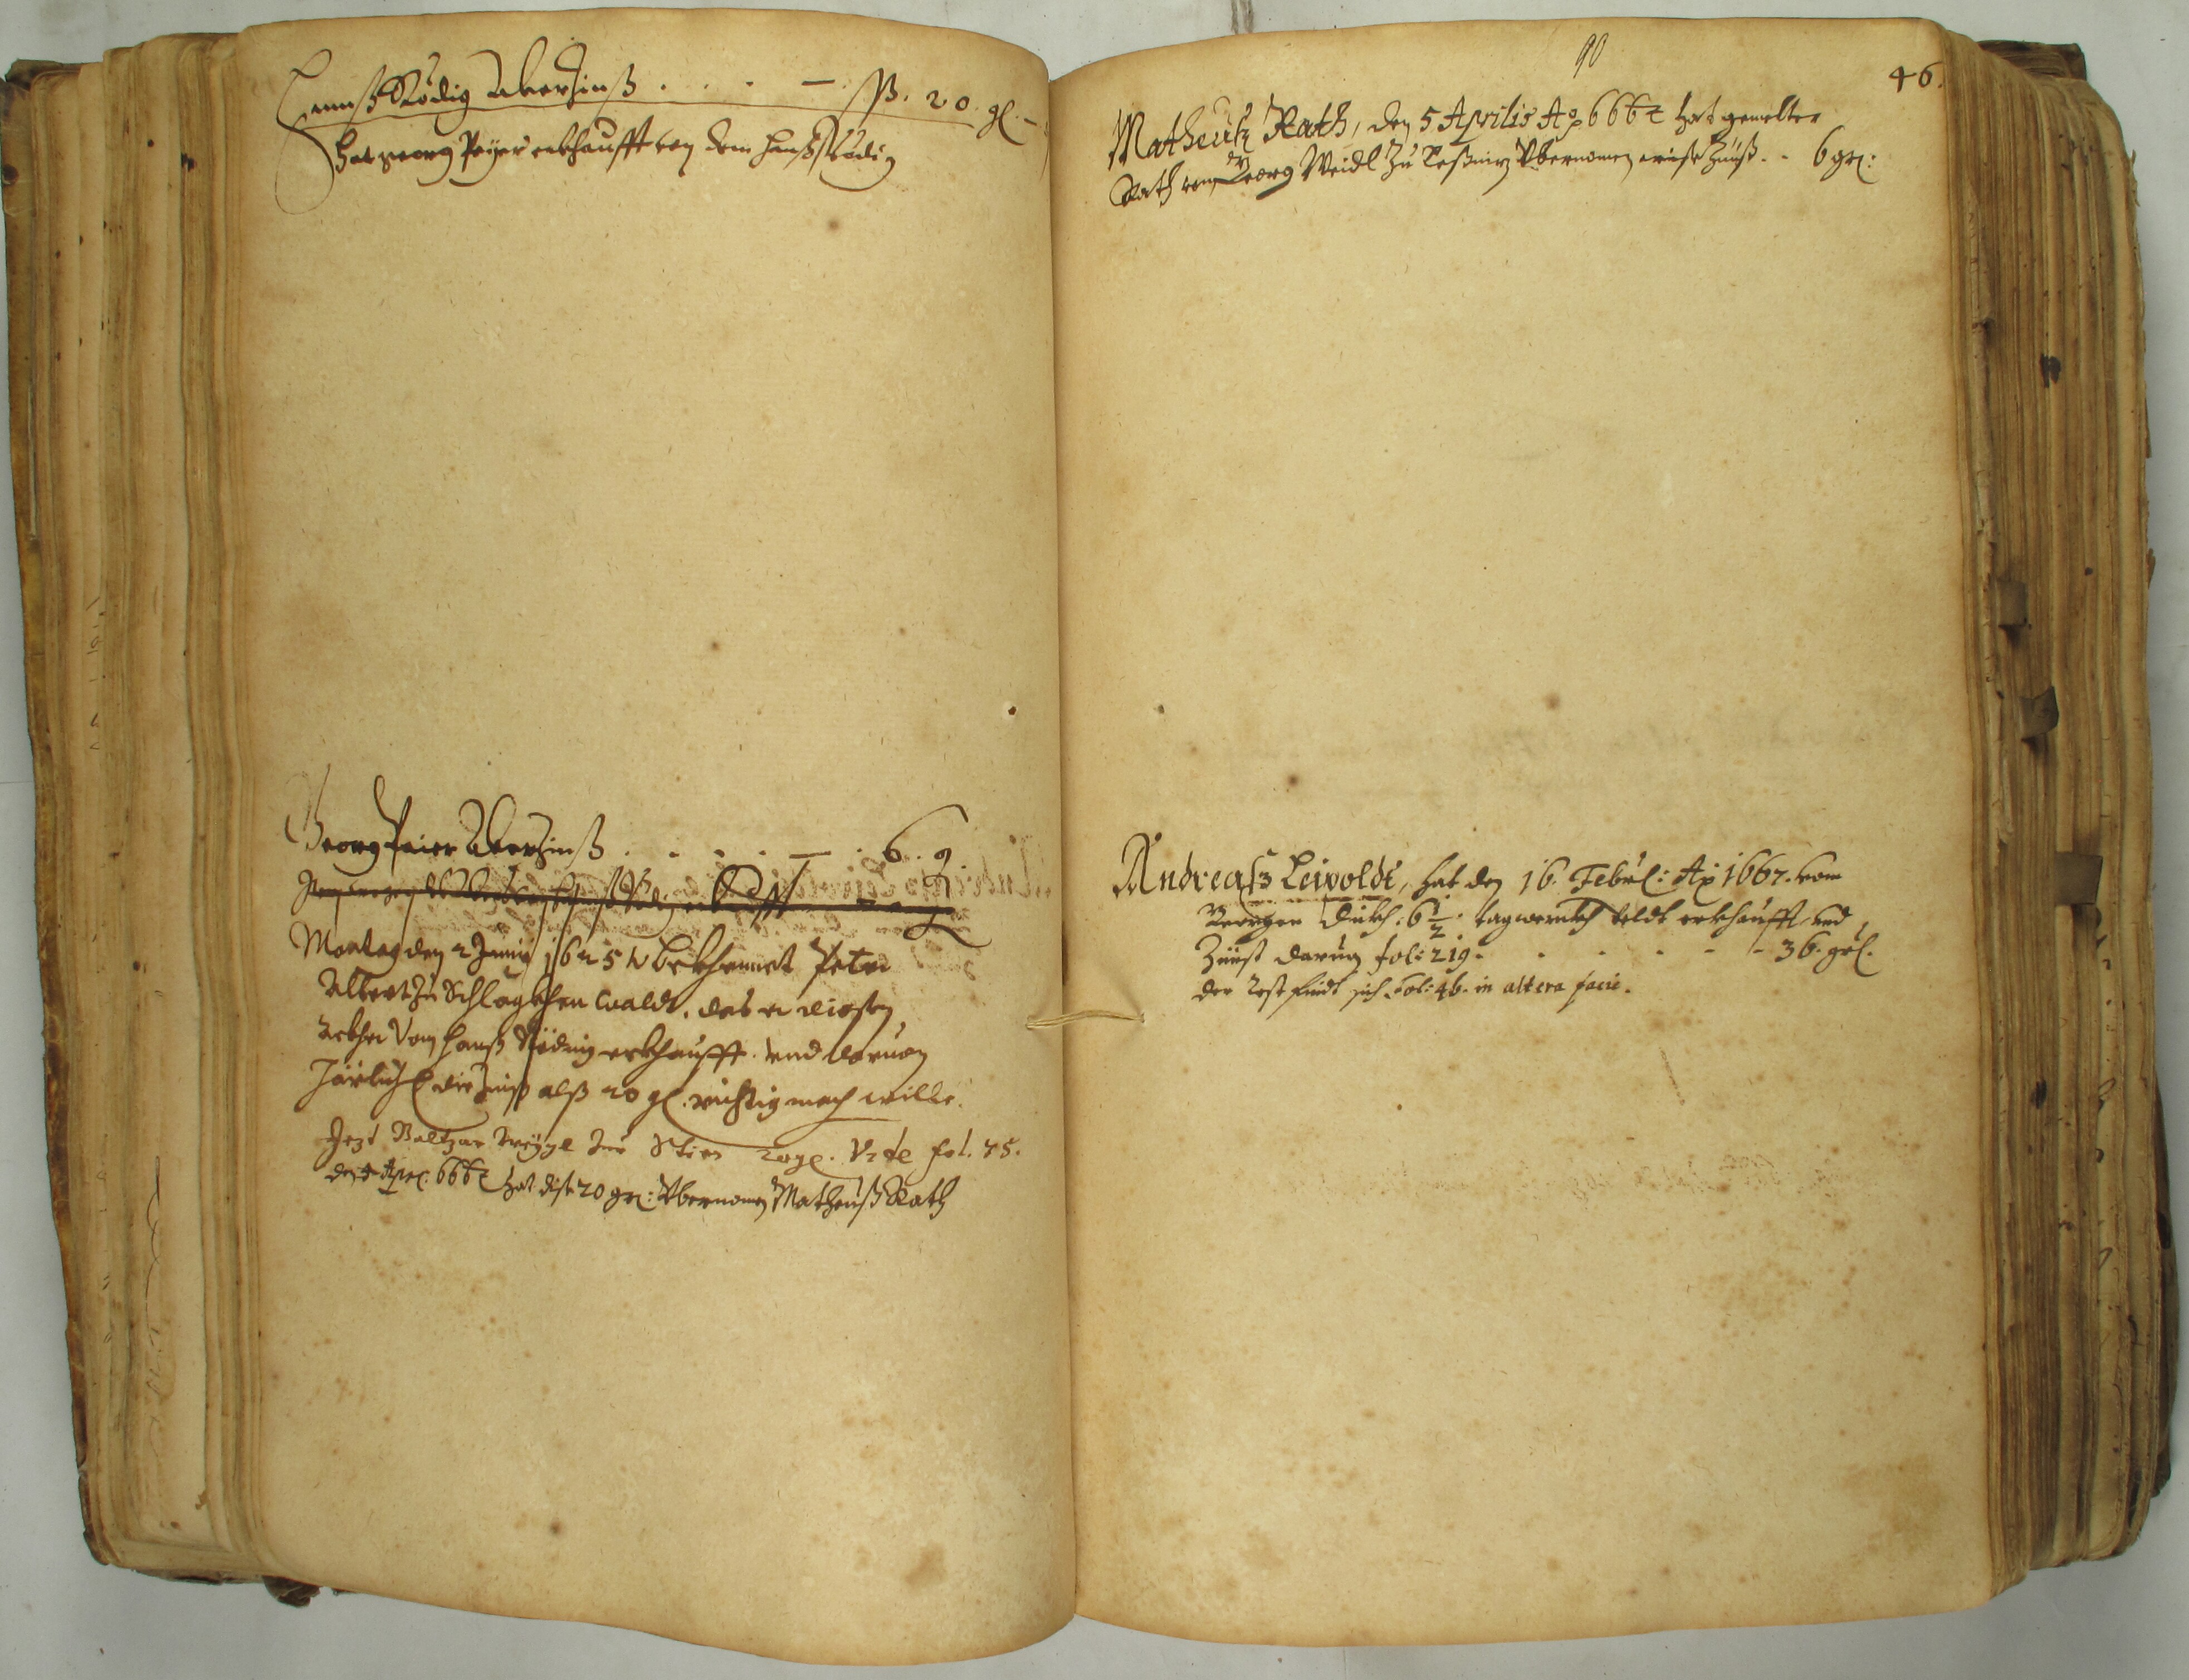 Hannß Ködig Aberzinß . . . . — . ß. 20. gl. —
Hat georg Peyer erkhaufft von dem Hanß Ködig
Georg Paier Aberzinß . . . . — . 6. g.
Montag den 2 Junij 1625 bekhennet Peter
Albert zu Schlagkhenwaldt. das er diesen
Ackher Vom Hanß Ködig erkhaufft. vnd daruon
Järlich die Zinß alß 20 gl. richtig mach wille.
Jezt Baltzar 20 gl. Vide fol. 45.
den 4 Apri: 666 hat dise 20 gr: Vbernomen Matheuß Rath
90
46.
Matheus Rath, den 5 Aprilis Ao 666 hat gemelter
Rath von Georg Weidl zu Leßnitz Vbernomen Zinß . . 6 gr:
Andreaß Leipoldt, hat den 16. Febrl: Ao 1667. vom
Georgen 6 1/2. tagwerckh feldt erkhaufft, vnd
Zinst daruon fol: 219. . . . . — 36. grl.
der Rest findt sich fol: 46. in altera facie.